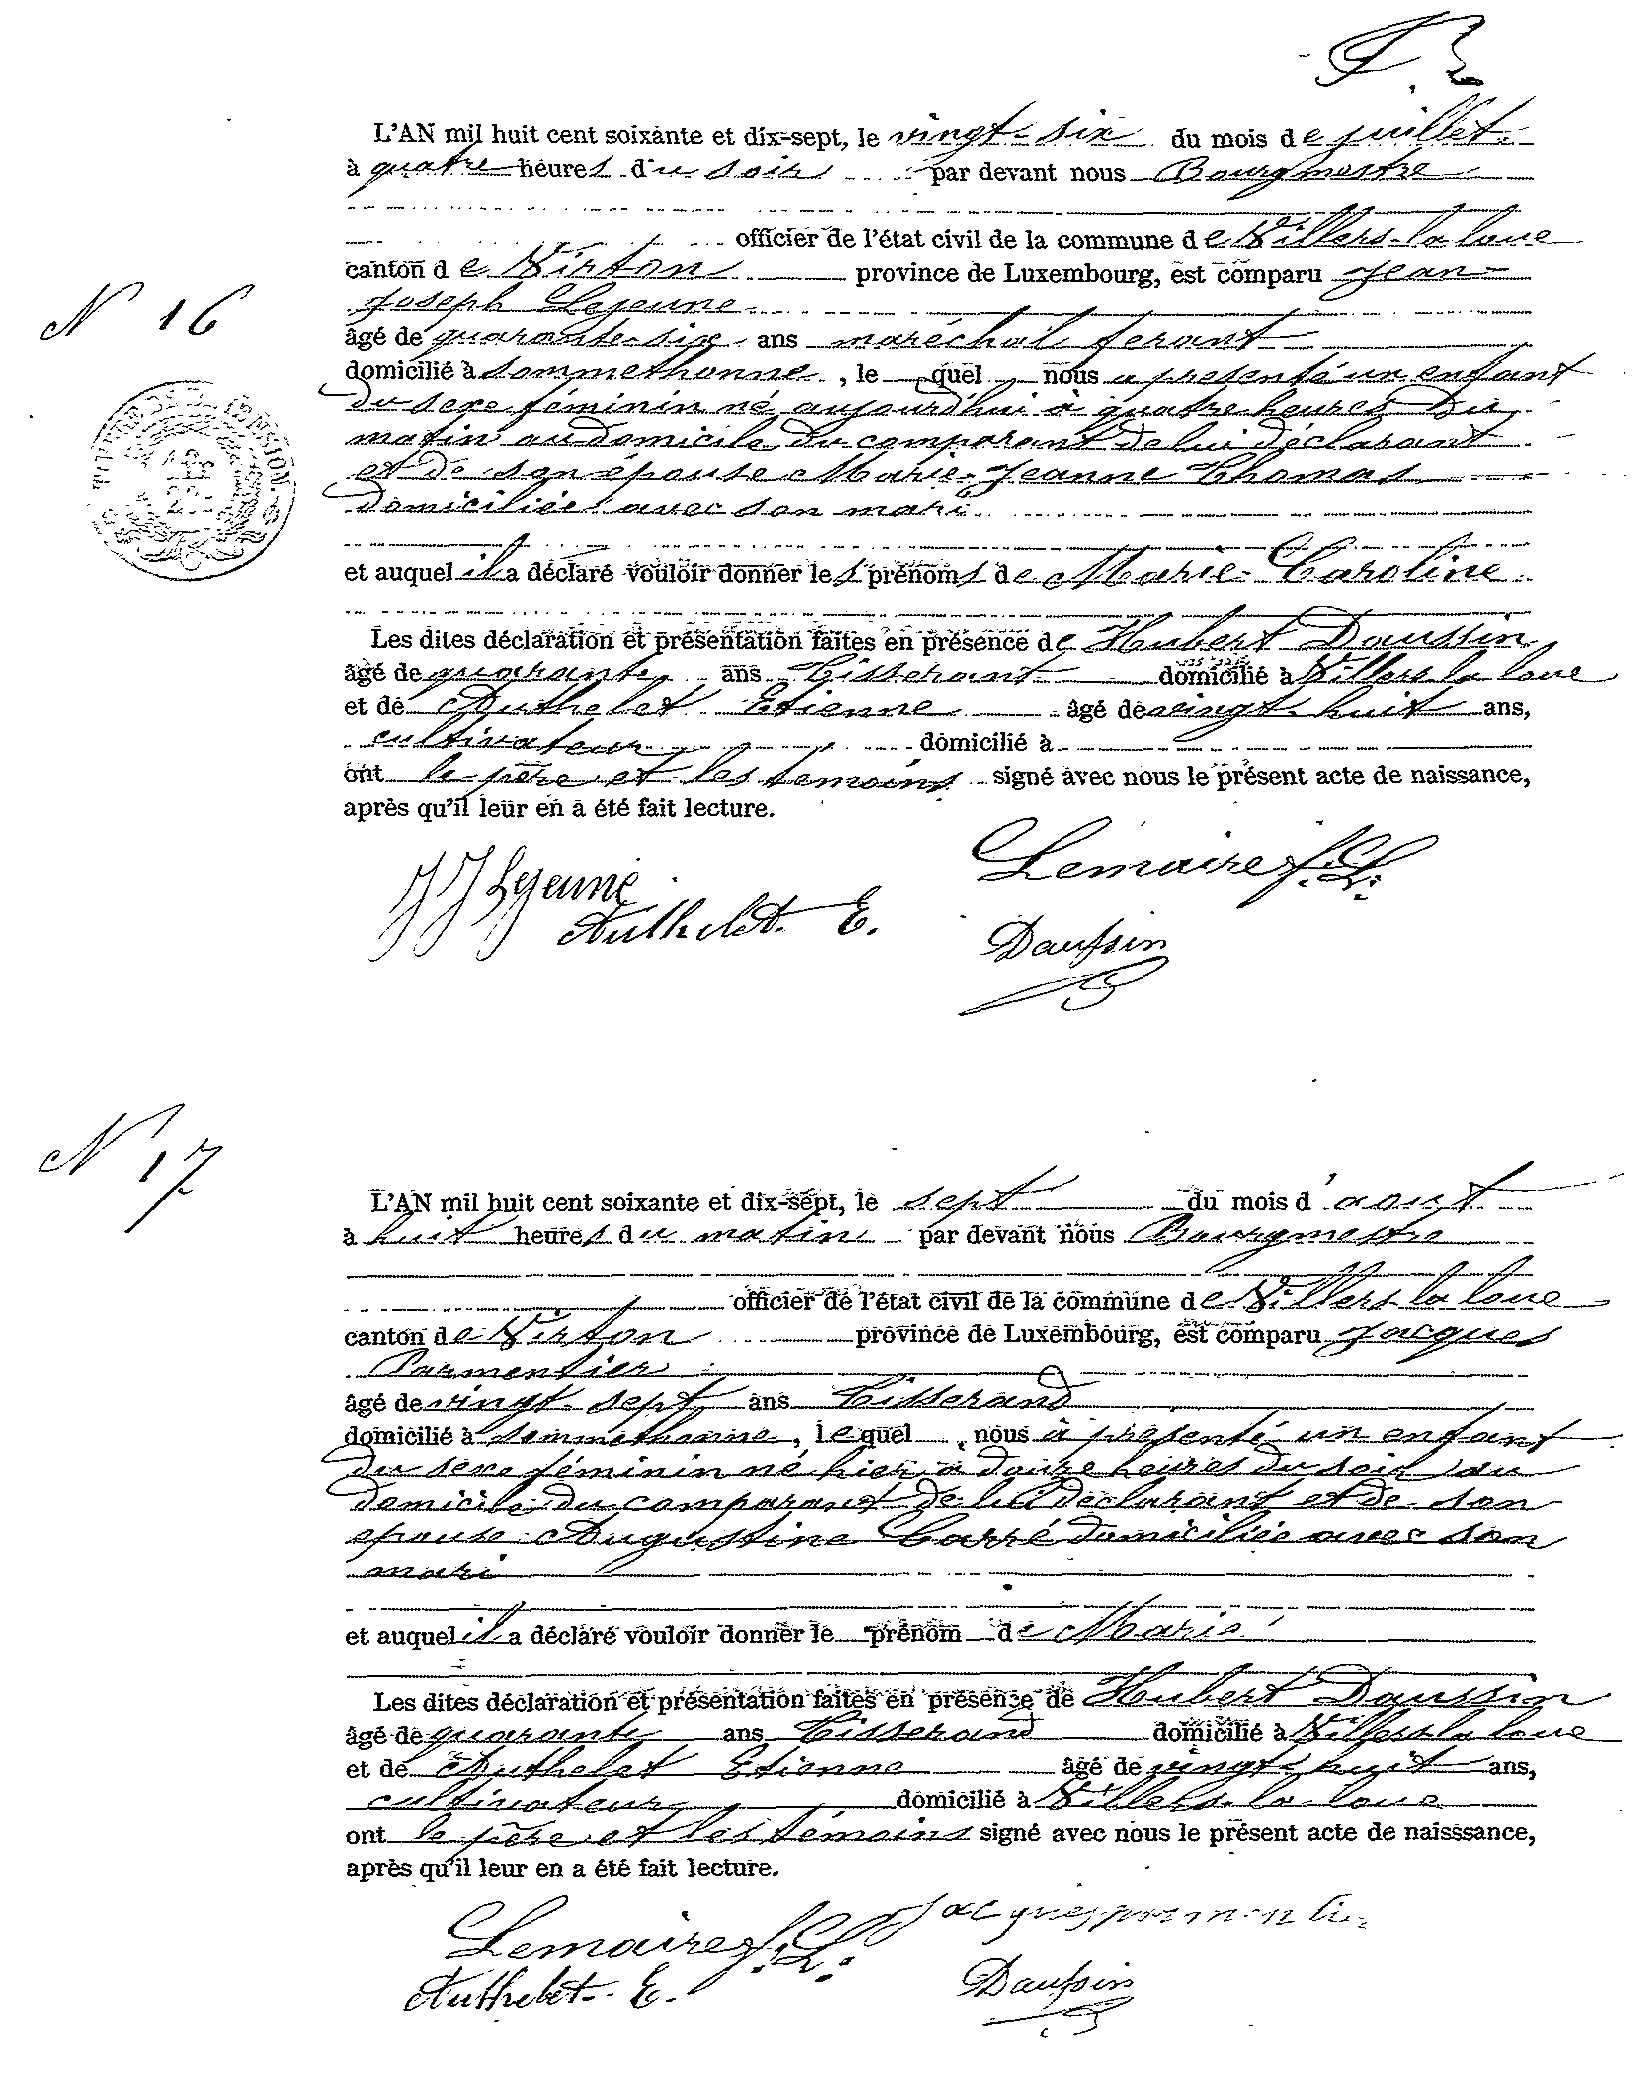 L'AN mil huit cent soixante et dix-sept, le vingt-six du mois de juillet
à quatre heures du soir par devant nous Bourgmestre
officier de l'état civil de la commune de Villers-la-loue
canton de Virton province de Luxembourg, est comparu Jean-
Joseph Lejeune
N 16
âgé de quarante-six ans maréchal ferant
domicilié à Sommethonne, le quel nous a présenté un enfant
du sexe féminin né aujourd'hui à quatre heures du
matin au domicile du comparant de lui déclarant
et de son épouse Marie-Jeanne Thomas
domiciliée avec son mari
et auquel il a déclaré vouloir donner les prénoms de Marie-Caroline
Les dites déclaration et présentation faites en présence de Hubert Daussin
âgé de quarante ans Tisserant domicilié à Villers la loue
et de Authelet Etienne âgé de vingt-huit ans,
cultivateur domicilié à
ont le père et les témoins signé avec nous le présent acte de naissance,
après qu'il leur en a été fait lecture.
Lemaire J. L.
JJ Lejeune
Authelet E.
Daussin
N 17
L'AN mil huit cent soixante et dix-sept, le sept du mois d'aout
à huit heures du matin par devant nous Bourgmestre
officier de l'état civil de la commune de Villers-la loue
canton de Virton province de Luxembourg, est comparu Jacques
Parmentier
âgé de vingt-sept ans Tisserand
domicilié à Sommethonne, lequel nous à présenté un enfant
du sexe féminin né hier à douze heures du soir au
domicile du comparant de lui déclarant et de son
épouse Augustine Carré domiciliée avec son
mari
et auquel il a déclaré vouloir donner le prénom de Marie
Les dites déclaration et présentation faites en présence de Hubert Daussin
âgé de quarante ans Tisserand domicilié à Villers la loue
et de Authelet Etienne âgé de vingt-huit ans,
cultivateur domicilié à Villers-la loue
ont le père et les témoins signé avec nous le présent acte de naisssance,
après qu'il leur en a été fait lecture.
Lemaire J. L.
Authelet E.
Daussin